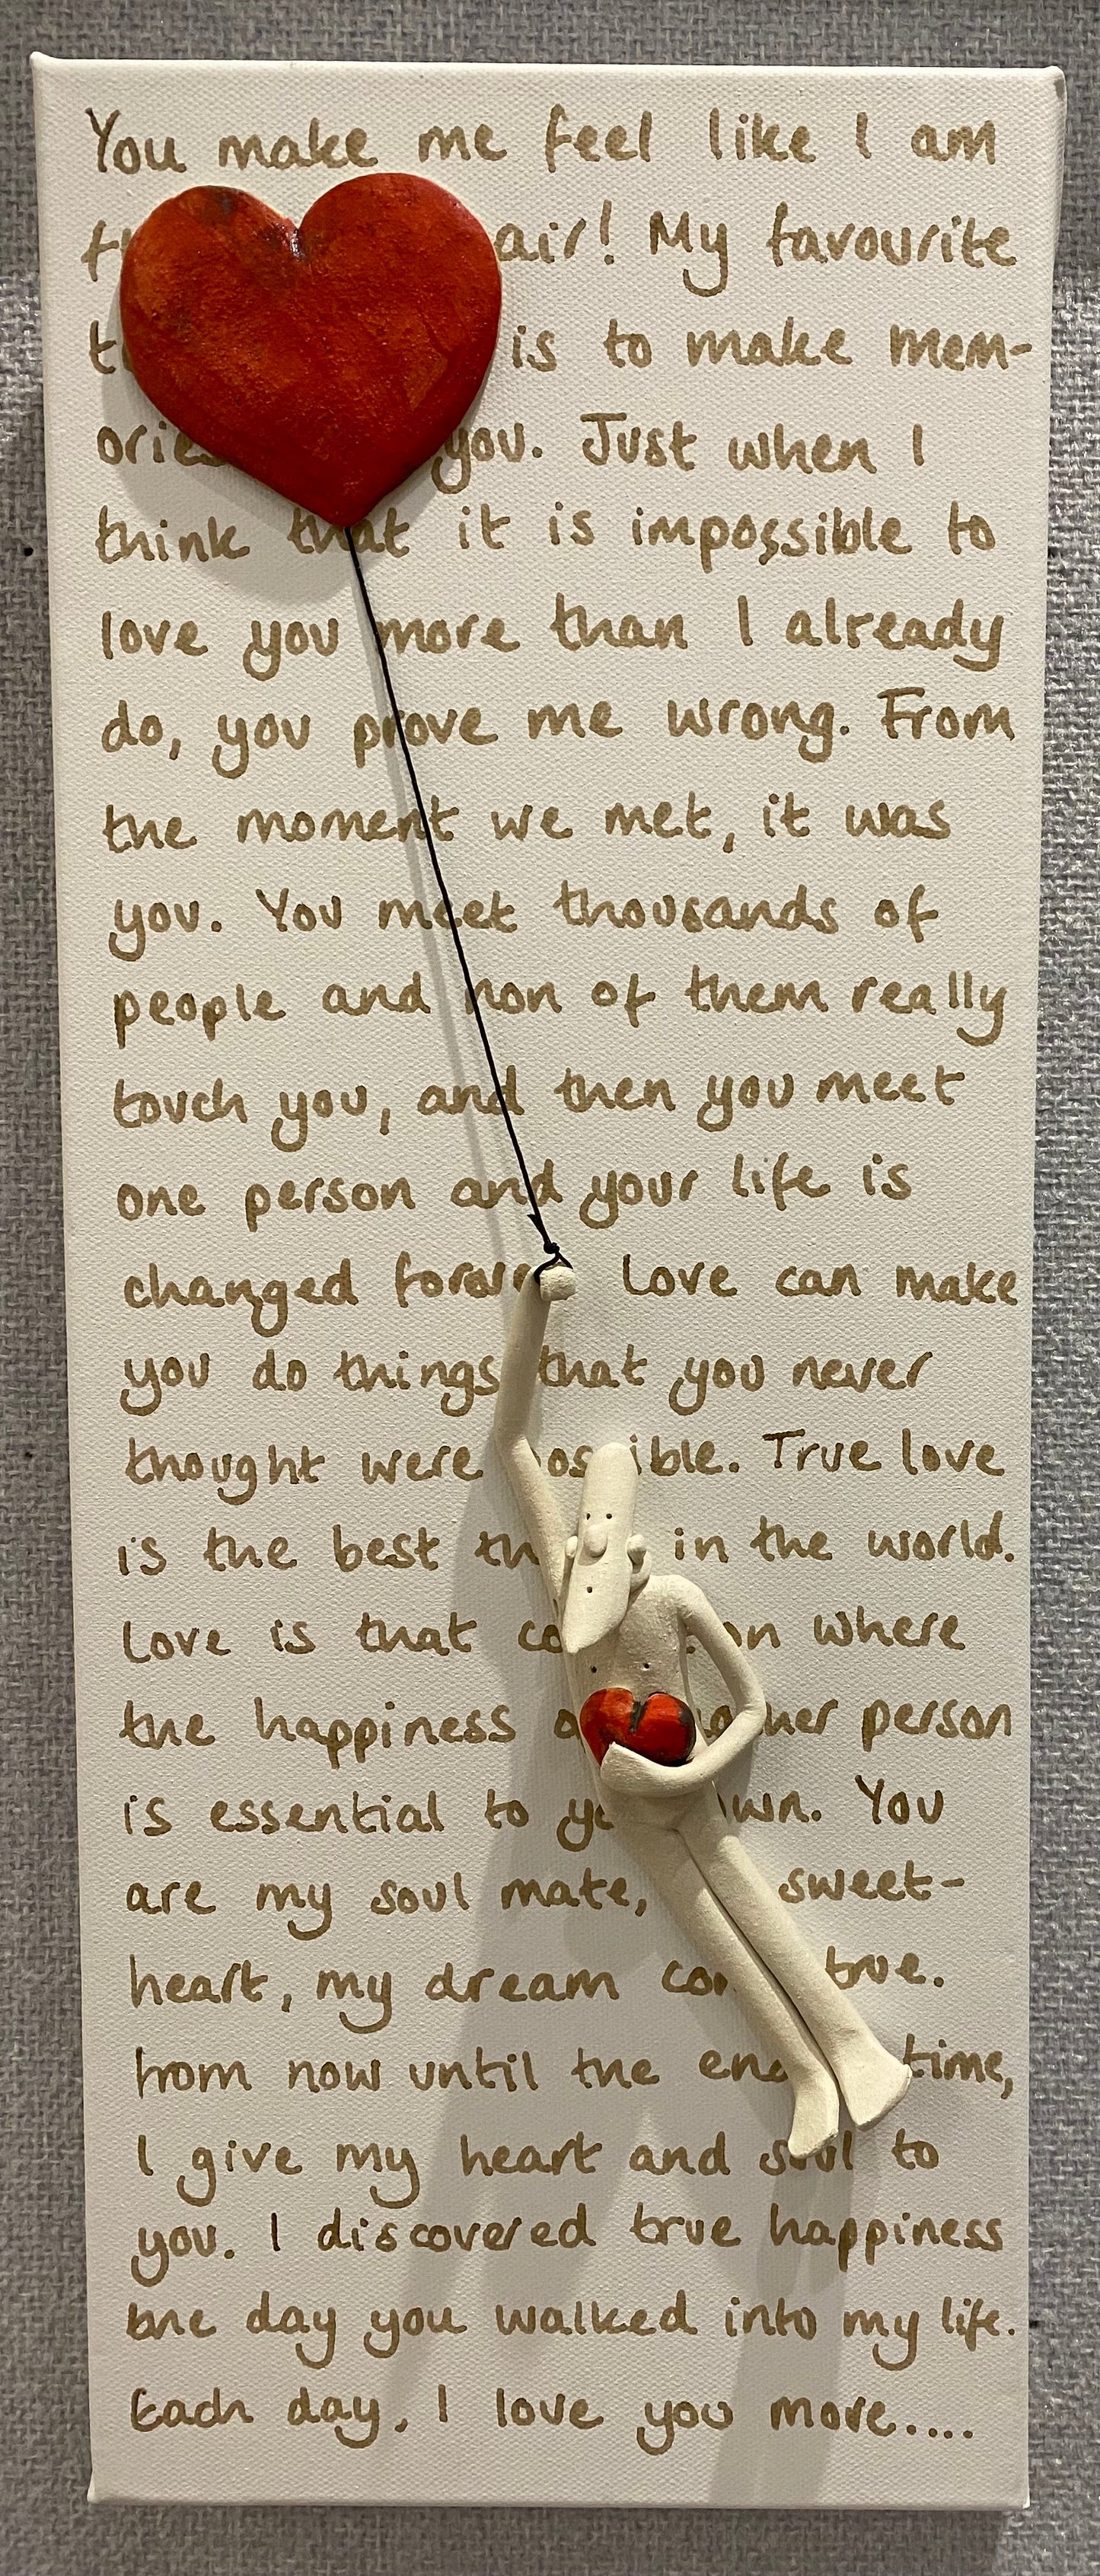 You make me feel like I am
air! My favourite
is to make mem-
you. Just when I
think that it is impossible to
love you more than I already
do, you prove me wrong. From
the moment we met, it was
you. You meet thousands of
people and non of them really
touch you, and then you meet
one person and your life is
changed Love can make
you do things that you never
thought were possible. True love
is the best in the world.
Love is that where
the happiness person
is essential to You
are my soul mate, sweet-
heart, my dream true.
from now until the time,
I give my heart and soul to
you. I discovered true happiness
the day you walked into my life.
Each day, I love you more....